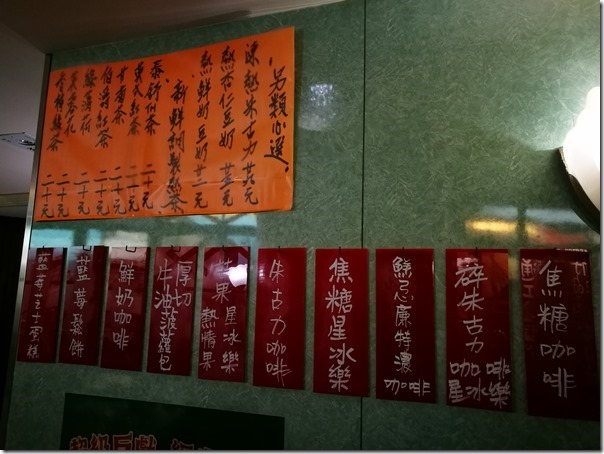 另類心選
凍熱朱古力 廿元
熱杏仁豆奶
熱鮮奶豆奶
新鮮調製熱茶
二十元
二十元
甘菊茶 二十元
伯爵紅茶 二十元
綠薄荷 二十元
二十元
綠茶 二十元
焦糖咖啡
碎朱古力
咖啡
星冰樂
鮮忌廉特濃
咖啡
焦糖星冰樂
朱古力咖啡
星冰樂
熱情果
厚切
牛油菠蘿包
鮮奶咖啡
藍莓鬆餅
藍莓芝士蛋糕
超級巨獻